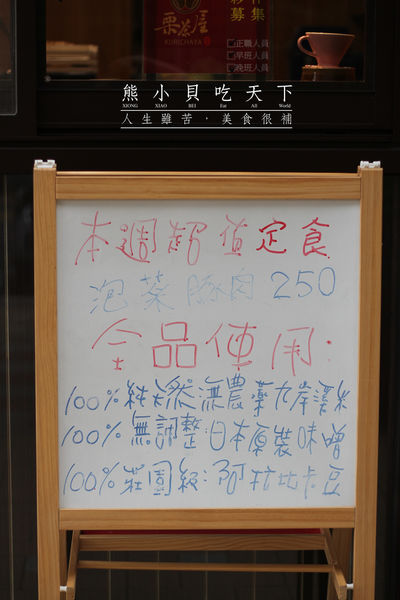 栗茶屋
KURICHAYA
募集
□正職人員
□早班人員
□晚班人員
熊小貝吃天下
XIONG XIAO BEI Eat All World
人生雖苦,美食很補
本週超值定食
泡菜豚肉 250
全品使用:
100%純天然:無農藥九岸溪米
100%無調整:日本原裝味噌
100%莊園級:阿拉比卡豆